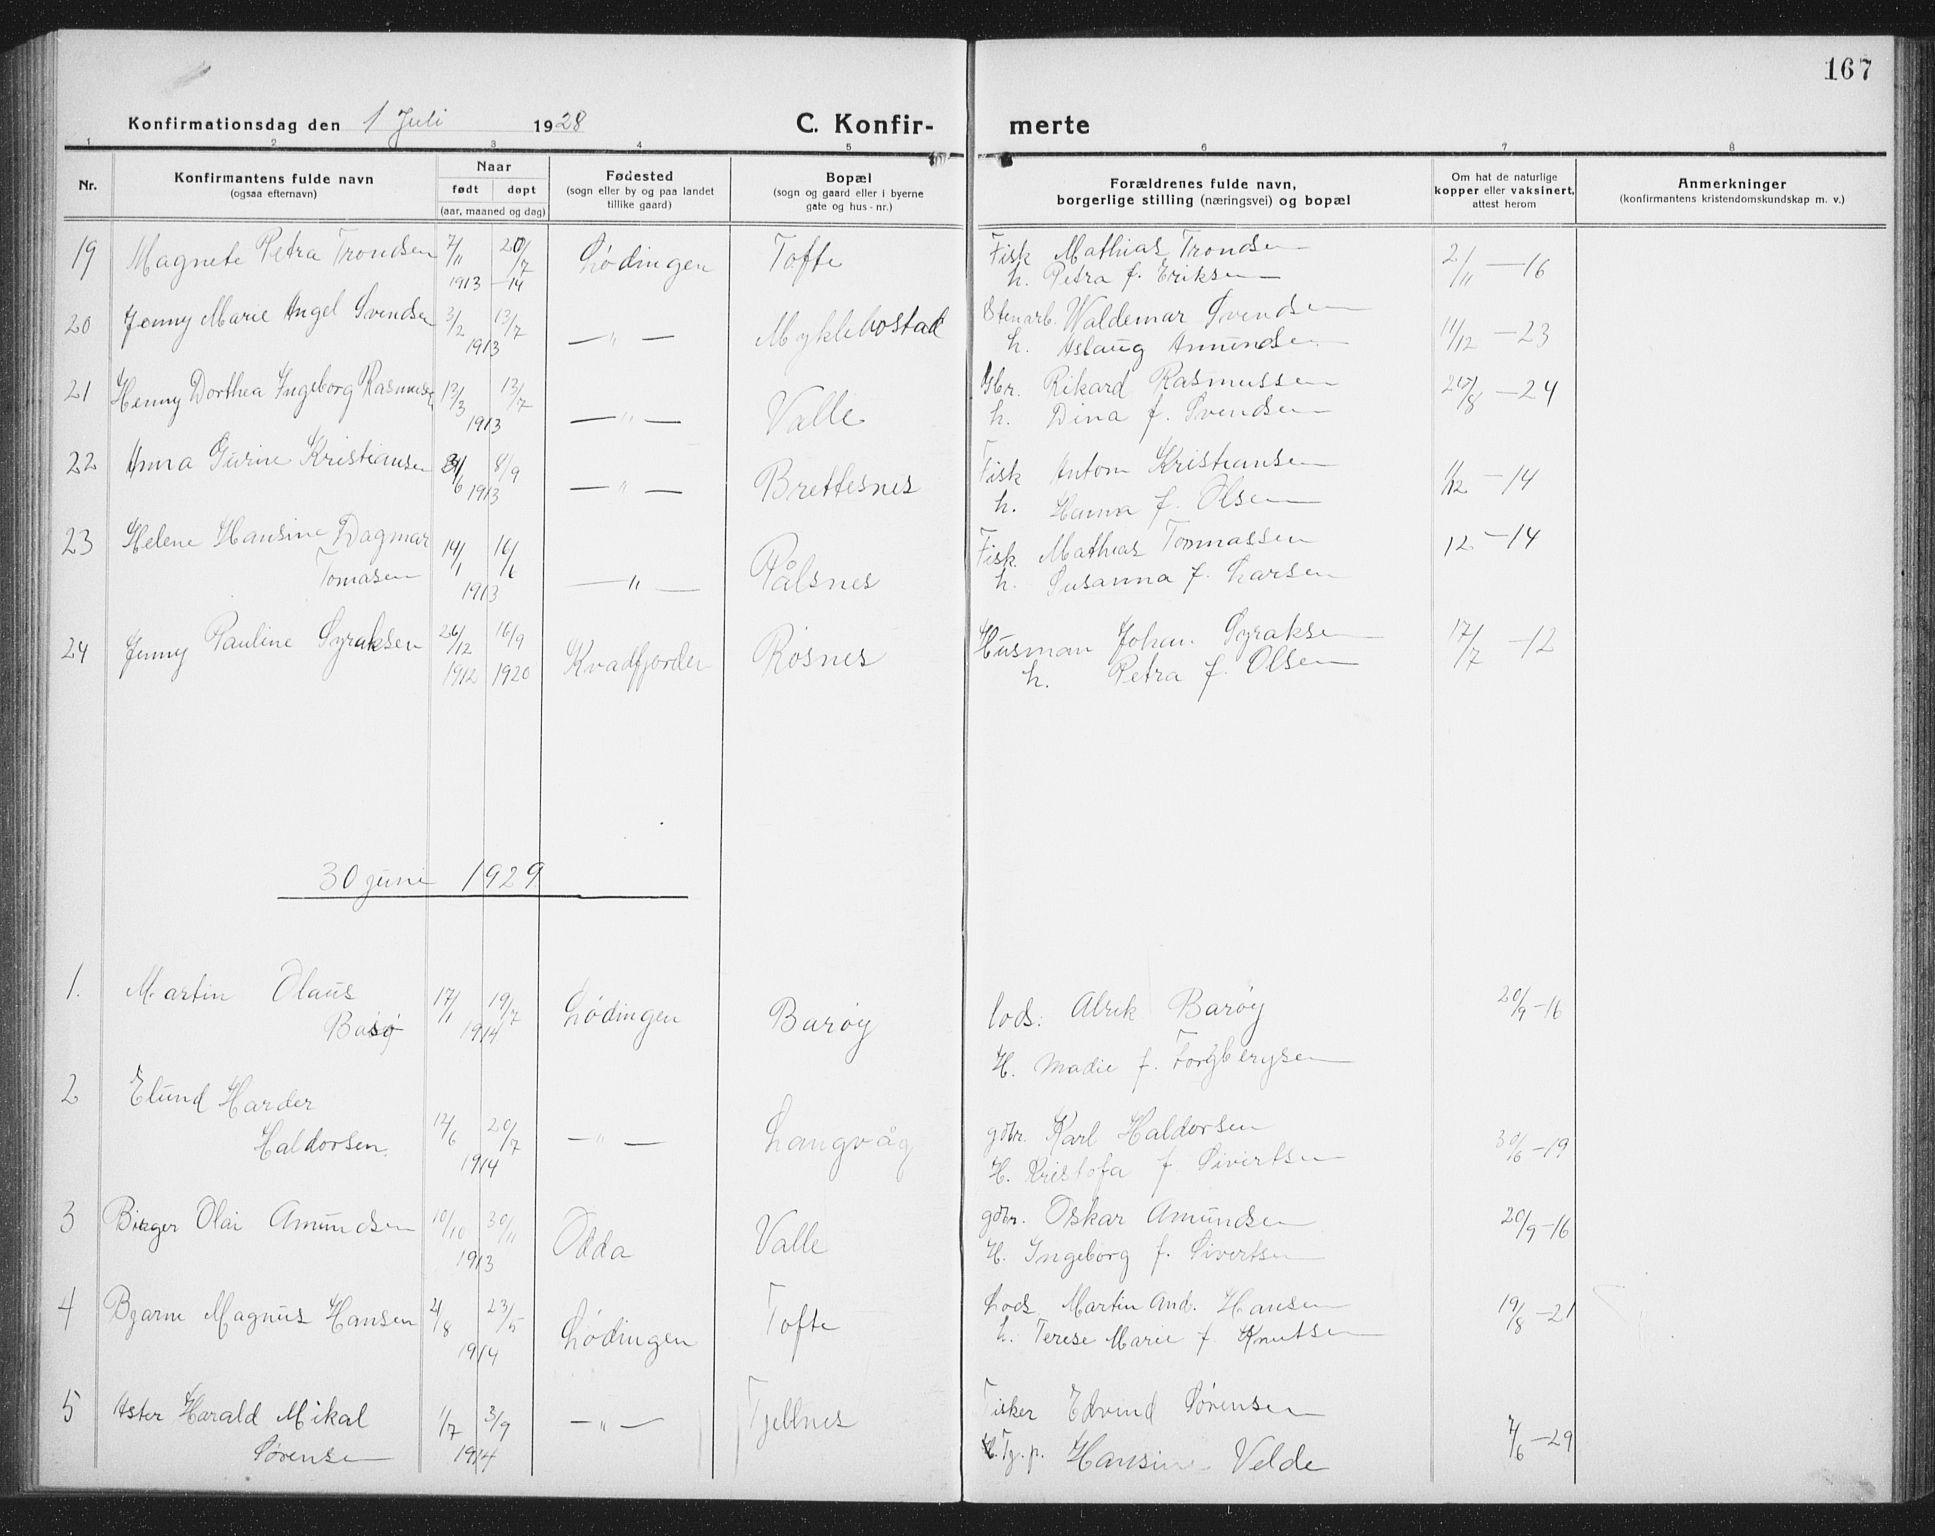 167
Konfirmationsdag den 1 Juli 1928 C. Konfir- merte
1 2 3 4 5 6 7 8
Nr. Konfirmantens fulde navn (ogsaa efternavn) Naar født døpt (aar, maaned og dag) Fødested (sogn eller by og paa landet tillike gaard) Bopæl (sogn og gaard eller i byerne gate og hus-nr.) Forældrenes fulde navn, borgerlige stilling (næringsvei) og bopæl Om hat de naturlige kopper eller vaksinert, attest herom Anmerkninger (konfirmantens kristendomskundskap m. v.)
19 Magnete Petra Trondsen 7/11 1913 20/7 -14 Lødingen Tofte Fisk Mathias Trondsen 2/11 - 16
h. Petra f. Eriksen
20 Jenny Marie Angel Svendsen 3/2 13/7 1913 — " — Myklebostad Stenarb. Waldemar Svendsen 11/12 - 23
h. Aslaug Amundsen
21 Henny Dorthea Ingeborg Rasmussen 13/3 13/7 1913 — " — Valle Gbr. Rikard Rasmussen 28/8 - 24
h. Dina f. Svendsen
22 Anna Gurine Kristiansen /6 8/9 1913 — " — Brettesnes Fisk Anton Kristiansen 1/12 - 14
h. Hanna f. Olsen
23 Helene Hansine Dagmar 14/1 16/6 1913 — " — Pålsnes Fisk Mathias Tommassen 12 - 14
Tomasen h. Susanna f. Larsen
24 Jenny Pauline Syraksen 26/12 1912 16/9 1920 Kvadfjorden Rosnes Husman Johan Syraksen 17/7 - 12
h. Petra f. Olsen
30 juni 1929
1. Martin Olaus 17/1 19/7 1914 Lødingen Barøy lods. Alrik Barøy 20/9 - 16
H. Madie f.
2 Elund Harder 12/6 20/7 1914 — " — Langvåg gbr. Karl Haldorsen 30/6 - 19
Haldorsen. H. Kristofa f. Sivertsen
3 Birger Olai Amundsen 10/10 30/11 1913 Odda Valle gbr. Oskar Amundsen 20/9 - 16
H. Ingeborg f. Sivertsen
4 Bjarne Magnus Hansen 4/8 23/5 1914 Lødingen Tofte Lods Martin And. Hansen 19/8 - 21
h. Terese Marie f. Knutsen
5 Aster Harald Mikal 1/7 3/9 1914 — " — Tjellnes Fisker Edvind Sørensen 7/6 - 29
Sørensen Tj. p. Hansine Velde